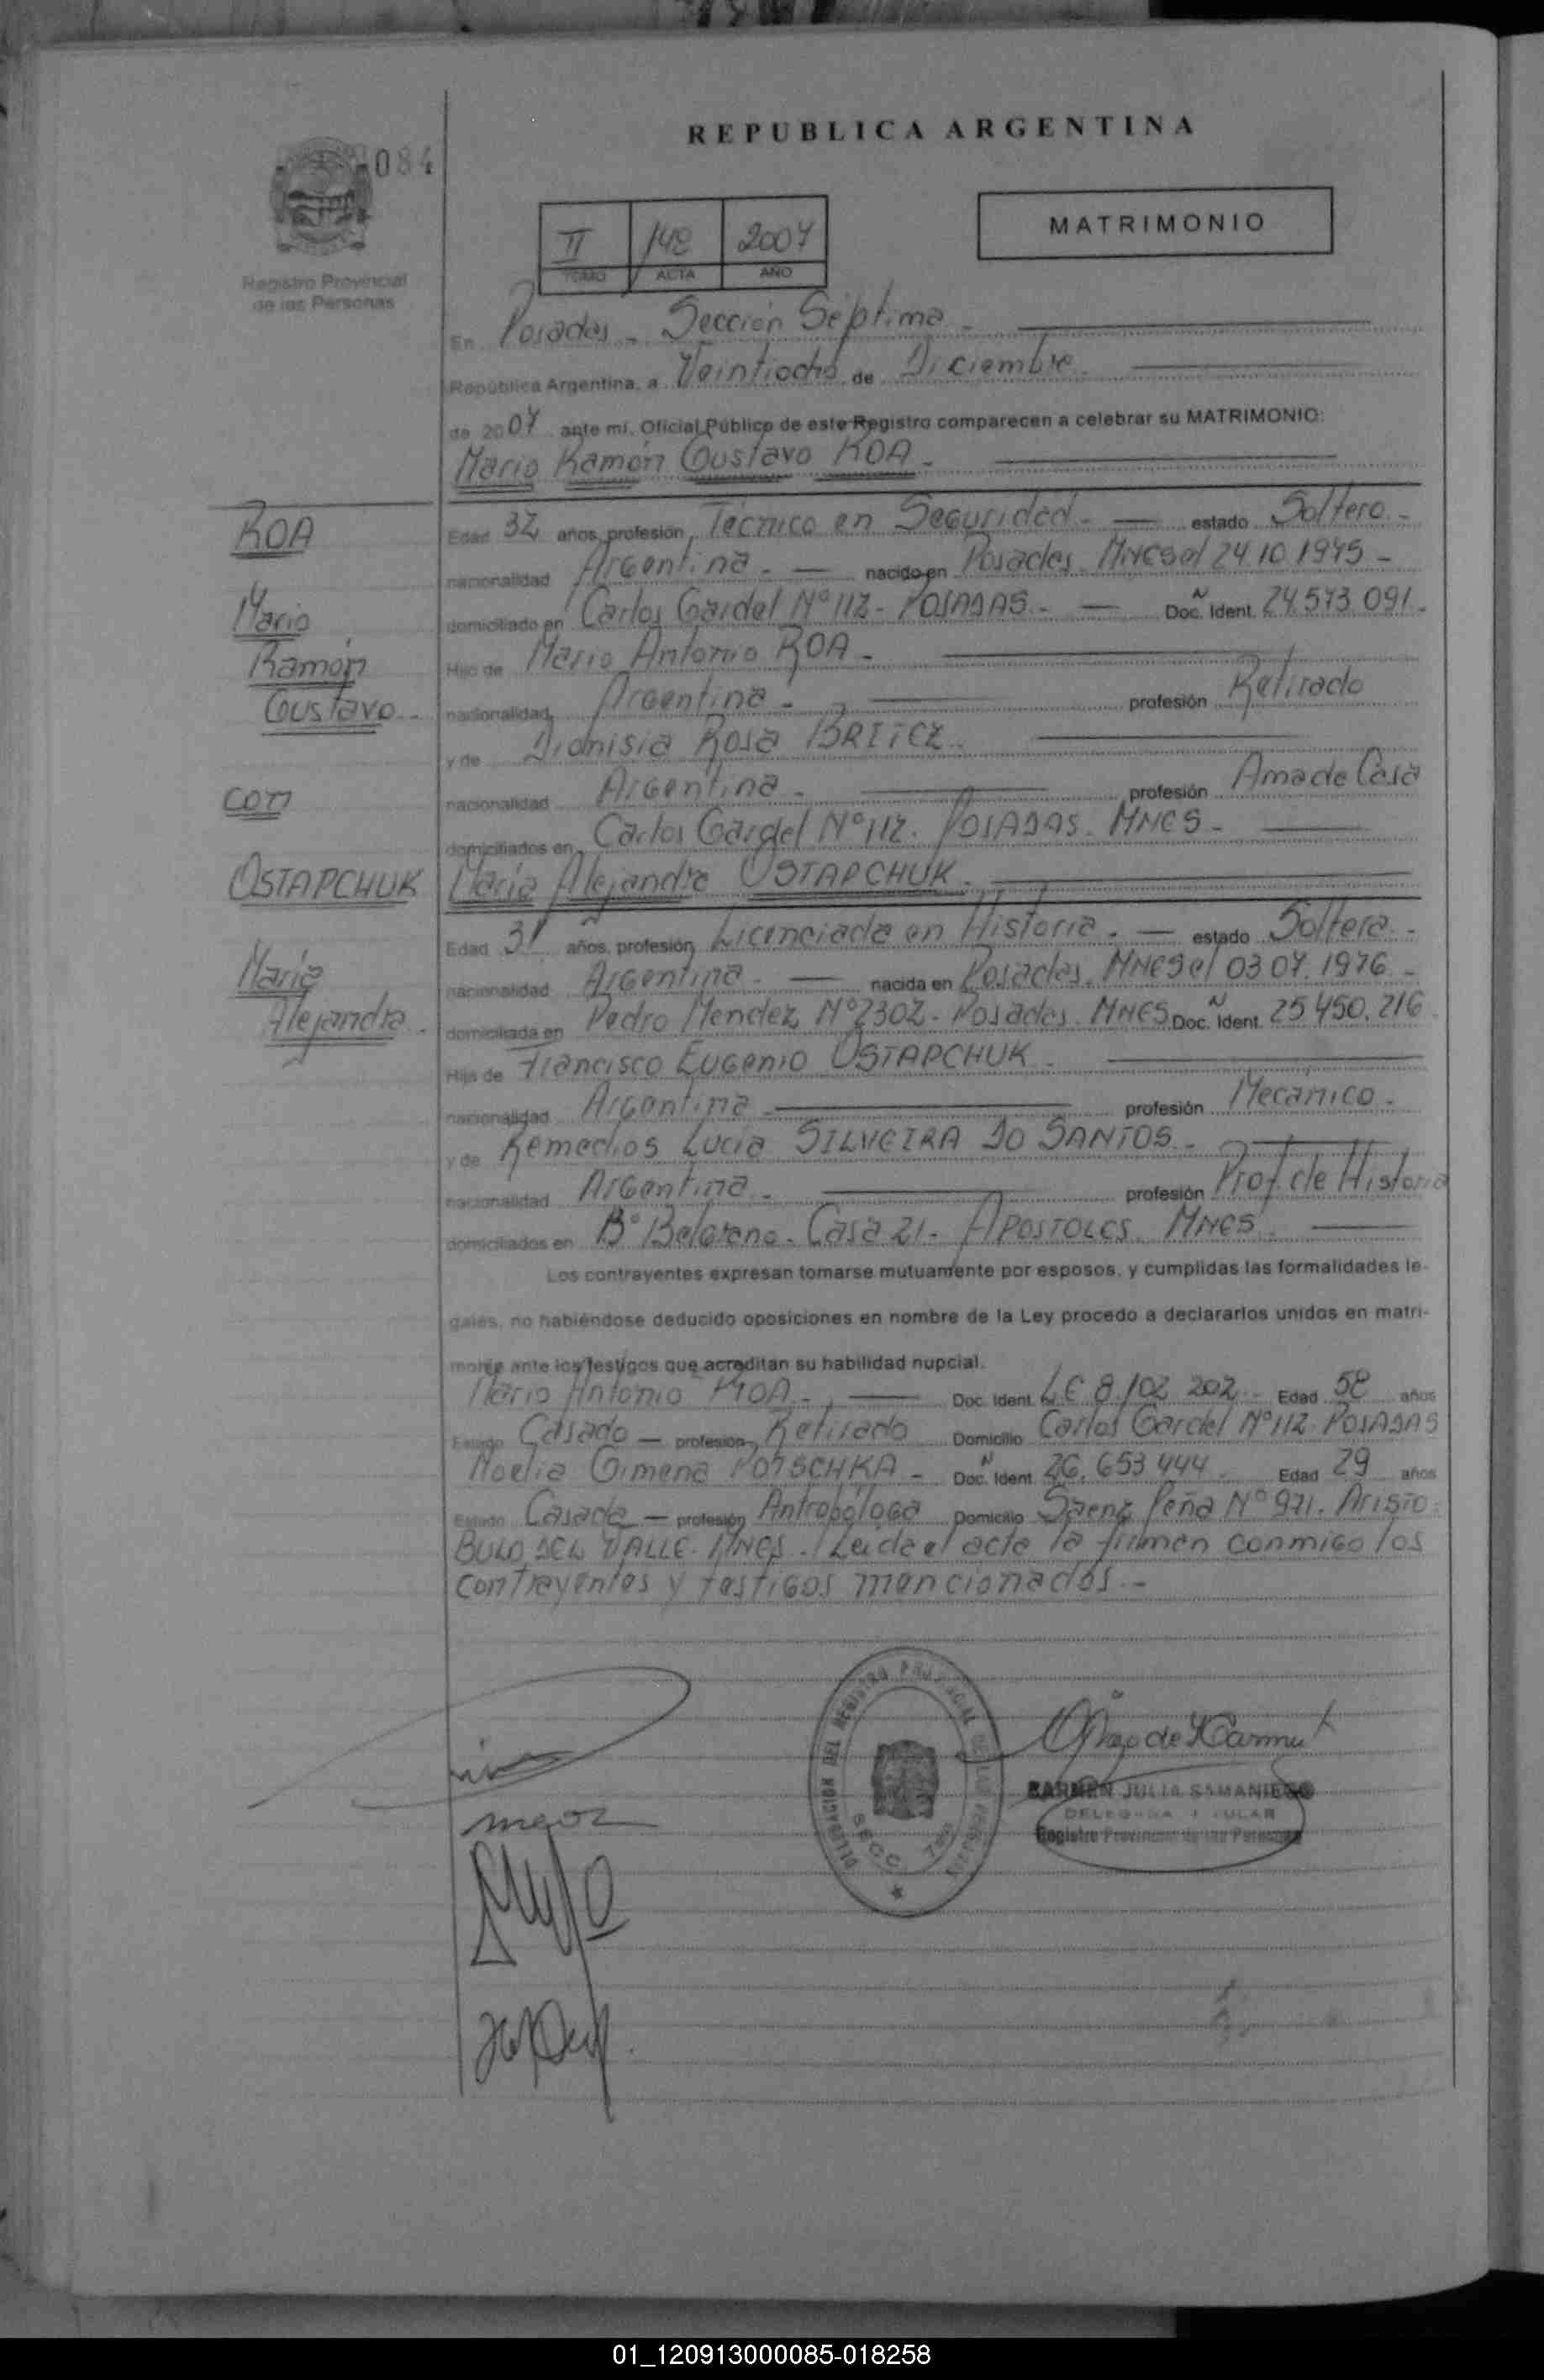 REPUBLICA ARGENTINA
084
Registro Provincial
de las Personas
II 148 2007
TOMO ACTA AÑO
MATRIMONIO
En Posadas - Sección Séptima -
República Argentina, a Veintiocho de Diciembre
de 2007 ante mí, Oficial Público de este Registro comparecen a celebrar su MATRIMONIO:
Mario Ramón Gustavo ROA -
ROA
Mario
Ramón
Gustavo -
con
OSTAPCHUK
María
Alejandra -
Edad 32 años, profesión Técnico en Seguridad - estado Soltero -
nacionalidad Argentina - nacido en Posadas Mnes el 24.10.1975 -
domiciliado en Carlos Gardel Nº 112 - POSADAS - Doc. N Ident. 24.573.091 -
Hijo de Mario Antonio ROA -
nacionalidad Argentina - profesión Retirado
y de Dionisia Rosa BRITEZ
nacionalidad Argentina - profesión Ama de Casa
domiciliados en Carlos Gardel Nº 112. POSADAS. MNES -
María Alejandra OSTAPCHUK -
Edad 31 años, profesión Licenciada en Historia. - estado Soltera -
nacionalidad Argentina - nacida en Posadas. MNES el 03.07.1976 -
domiciliada en Pedro Mendez Nº 2302 - Posadas. MNES Doc. N Ident. 25.450.216
Hija de Francisco Eugenio OSTAPCHUK -
nacionalidad Argentina profesión Mecánico -
y de Remedios Lucia SILVEIRA DO SANTOS -
nacionalidad Argentina - profesión Prof. de Historia
domiciliados en Bº Belgrano - Casa 21 - APOSTOLES. MNES
Los contrayentes expresan tomarse mutuamente por esposos, y cumplidas las formalidades le-
gales, no habiéndose deducido oposiciones en nombre de la Ley procedo a declararlos unidos en matri-
monio ante los testigos que acreditan su habilidad nupcial.
Mario Antonio ROA - Doc. Ident. LE 8.102.202 - Edad 58 años
Estado Casado - profesión Retirado Domicilio Carlos Gardel Nº 112. POSADAS
Noelia Gimena POTSCHKA - Doc. N Ident. 26.653.444 Edad 29 años
Estado Casada - profesión Antropóloga Domicilio Saenz Peña Nº 971. ARISTO-
BULO DEL VALLE. MNES. Leida el acta la firman conmigo los
contrayentes y testigos mencionados -
DELEGACION DEL REGISTRO PROVINCIAL DE LAS PERSONAS
SECC. 7ma
CARMEN JULIA SAMANIEGO
DELEGADA TITULAR
Registro Provincial de las Personas
01_120913000085-018258